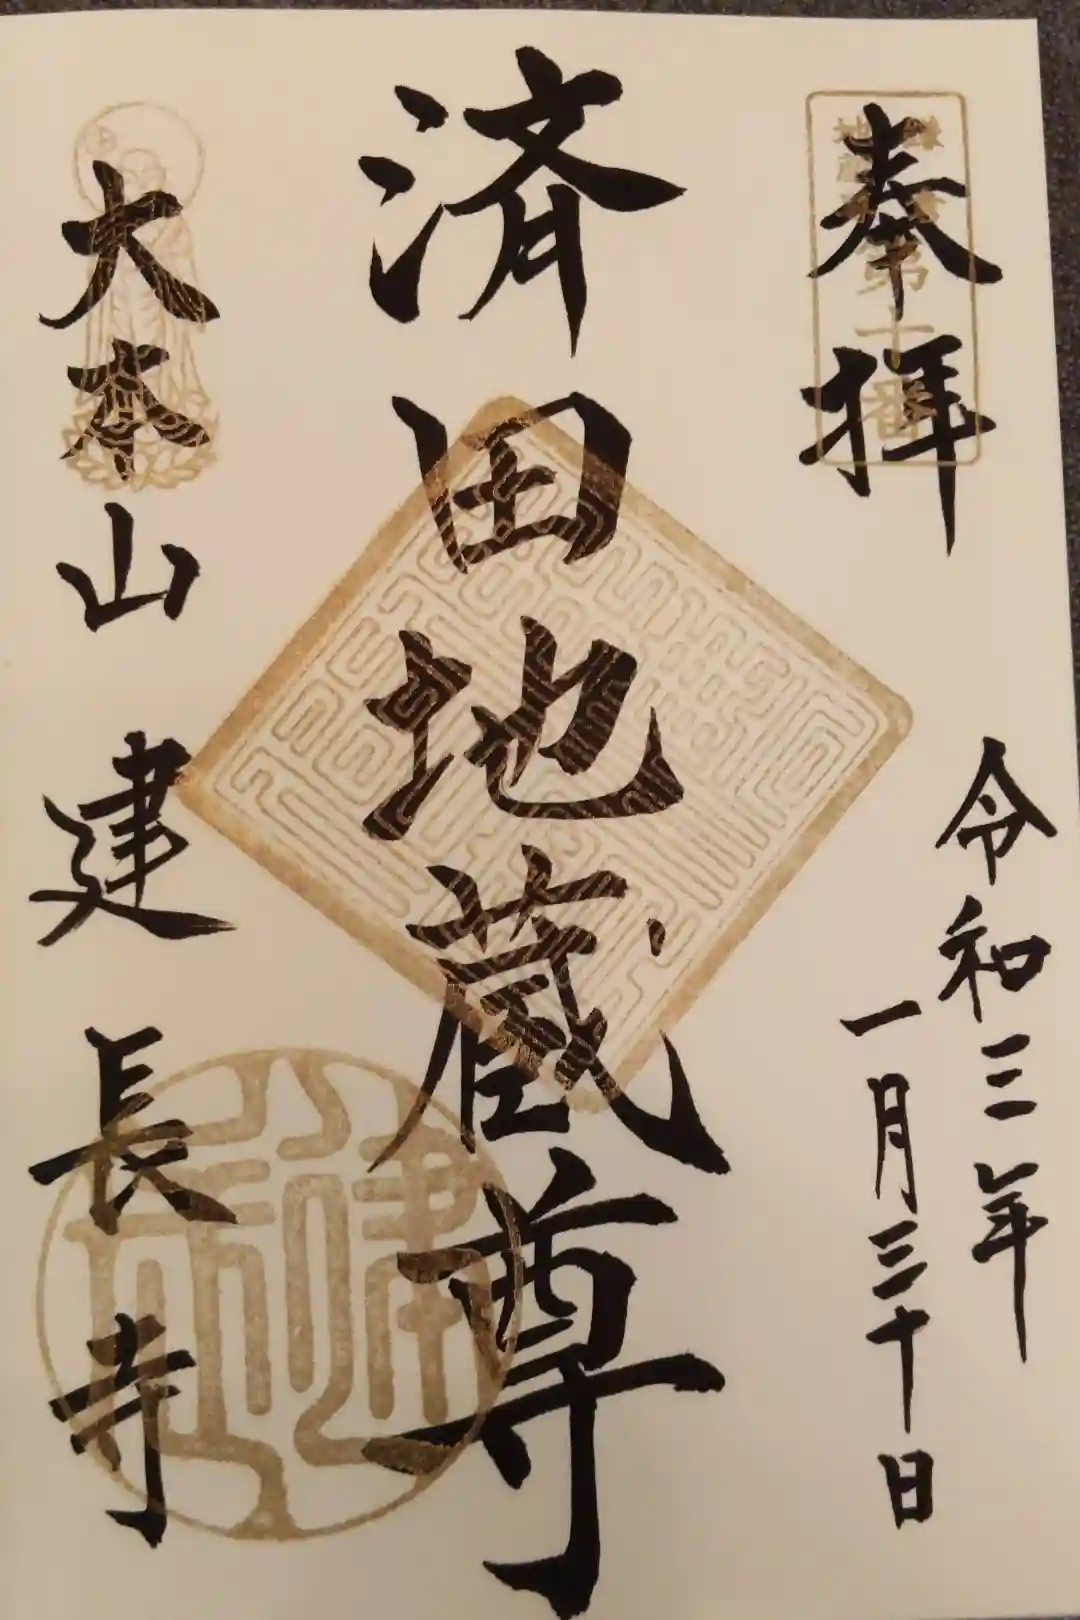 奉拝
第十番
令和三年
一月三十日
済田地蔵尊
大本山建長寺